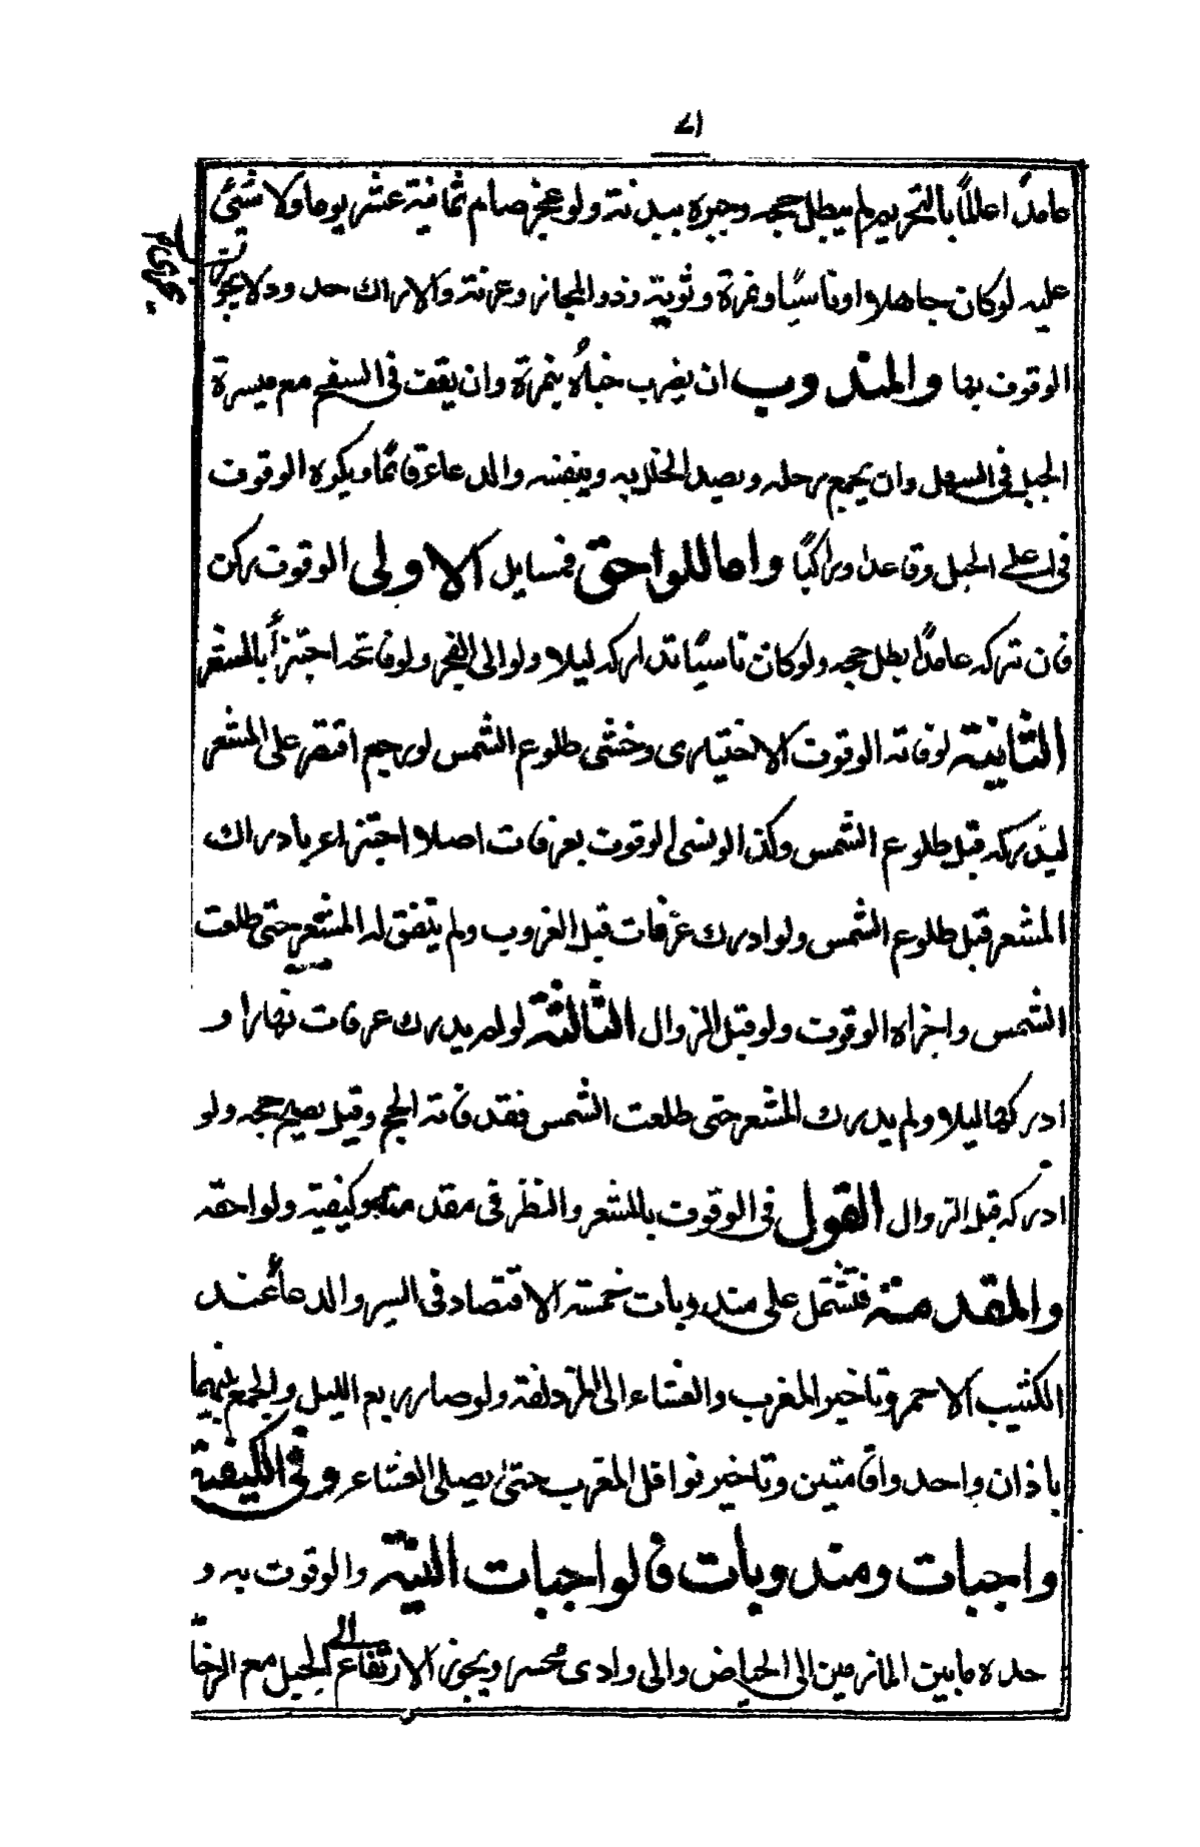 ٧١
عامدًا عالمًا بالتحريم لم يبطل حجه وجبره ببدنة ولو عجز صام ثمانية عشر يوما ولا شئ
عليه لو كان جاهلا او ناسيًا ونمرة وثوية وذو المجاز وعرنة والاراك حدود لا يجوز
الوقوف بها والمندوب ان يضرب خباءه بنمرة وان يقف فى السفح مع ميسرة
الجبل فى السهل وان يجمع رحله ويصد الخلل به وبنفسه والدعاء قائمًا ويكره الوقوف
فى اعلى الجبل وقاعدا وراكبًا واما اللواحق فمسايل الاولى الوقوف ركن
فان تركه عامدًا بطل حجه ولو كان ناسيًا تداركه ليلا ولو الى الفجر ولو فاتحد اجتزأ بالمشعر
الثانية لو فاته الوقوف الاختيارى وخشى طلوع الشمس لو رجع اقتصر على المشعر
ليدركه قبل طلوع الشمس وكذا لو نسى الوقوف بعرفات اصلا اجتزاء بادراك
المشعر قبل طلوع الشمس ولو ادرك عرفات قبل الغروب ولم يتفق له المشعر حتى طلعت
الشمس واجزاه الوقوف ولو قبل الزوال الثالثة لو لم يدرك عرفات نهارا و
ادركها ليلا ولم يدرك المشعر حتى طلعت الشمس فقد فاته الحج وقيل يصح حجه ولو
ادركه قبل الزوال القول فى الوقوف بالمشعر والنظر فى مقدمته وكيفيته ولواحقه
والمقدمة فتشتمل على مندوبات خمسة الاقتصاد فى السير والدعاء عند
الكثيب الاحمر وتاخير المغرب والعشاء الى المزدلفة ولو صار ربع الليل والجمع بينهما
باذان واحد واقامتين وتاخير نوافل المغرب حتى يصلى العشاء وفى الكيفية
واجبات ومندوبات فالواجبات النية والوقوف به و
حده ما بين المازمين الى الحياض والى وادى محسر ويجوز الارتفاع الى الجبل مع الزحام